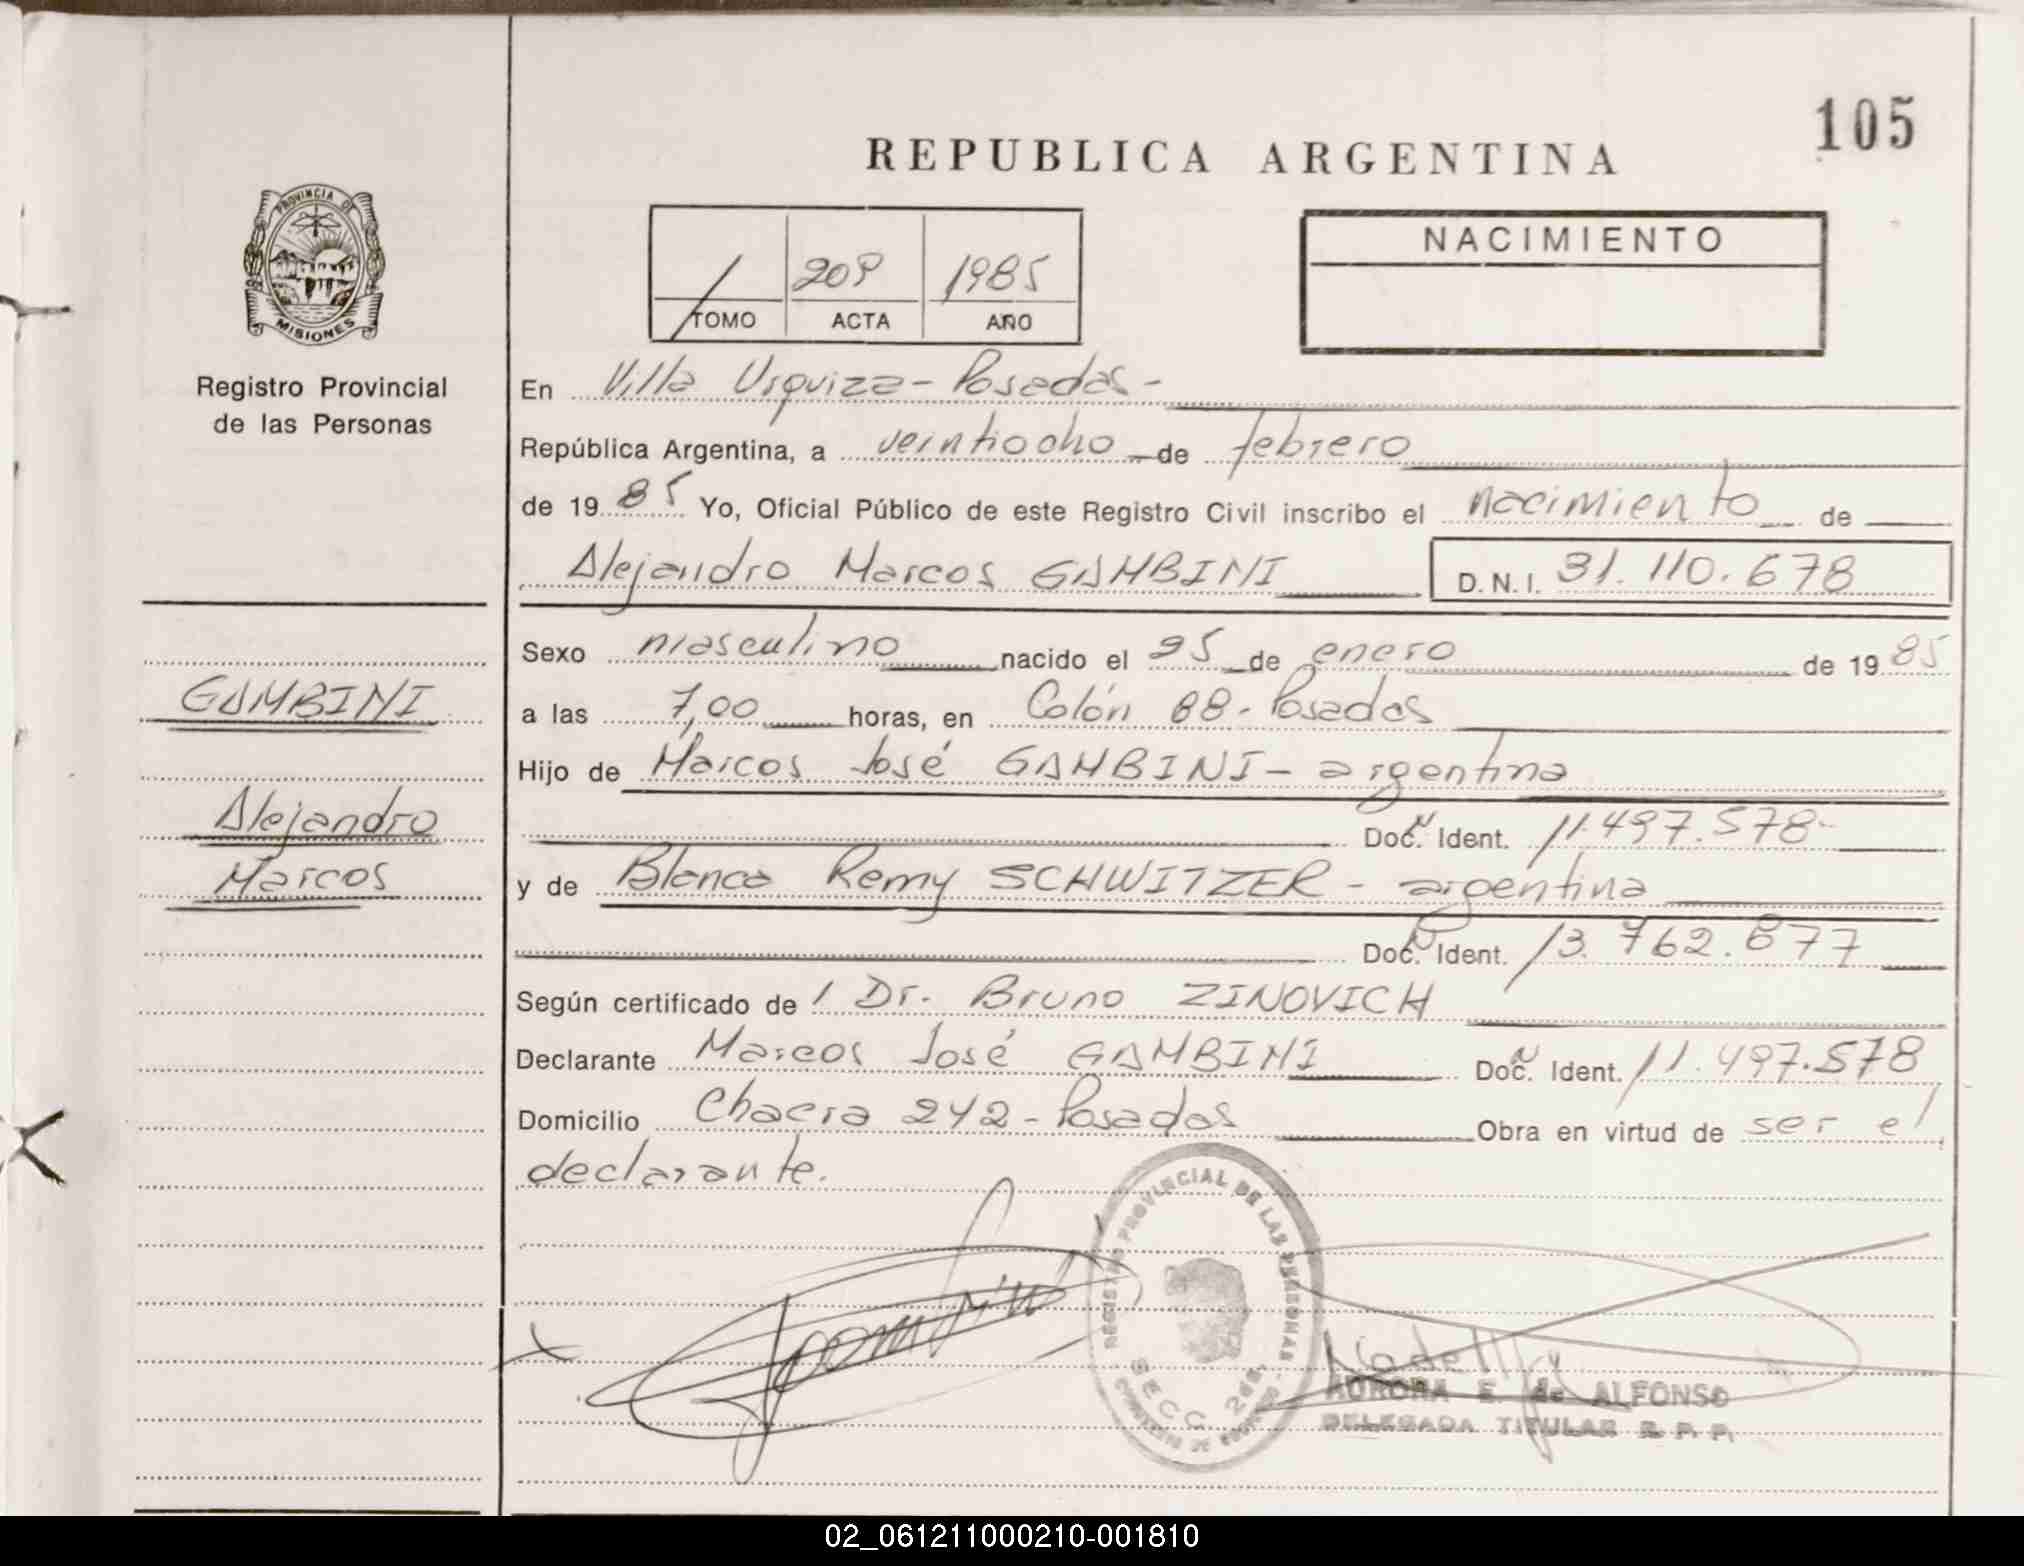 105
REPUBLICA ARGENTINA
PROVINCIA DE
MISIONES
Registro Provincial
de las Personas
209 1985
TOMO ACTA AÑO
NACIMIENTO
En Villa Urquiza - Posadas -
República Argentina, a veintiocho de febrero
de 1985 Yo, Oficial Público de este Registro Civil inscribo el nacimiento de
Alejandro Marcos GAMBINI D.N.I. 31.110.678
Sexo masculino nacido el 25 de enero de 1985
a las 7,00 horas, en Colón 88 - Posadas
Hijo de Marcos José GAMBINI - argentina
Doc. Ident. 11.497.578 -
y de Blanca Remy SCHWITZER - argentina
Doc. Ident. 13.762.877
Según certificado de / Dr. Bruno ZINOVICH
Declarante Marcos José GAMBINI Doc. Ident. 11.497.578
Domicilio Chacra 242 - Posadas Obra en virtud de ser el
declarante.
GAMBINI
Alejandro
Marcos
REGISTRO PROVINCIAL DE LAS PERSONAS
SECC. 2da.
AURORA E. de ALFONSO
DELEGADA TITULAR R. P. P.
02_061211000210-001810